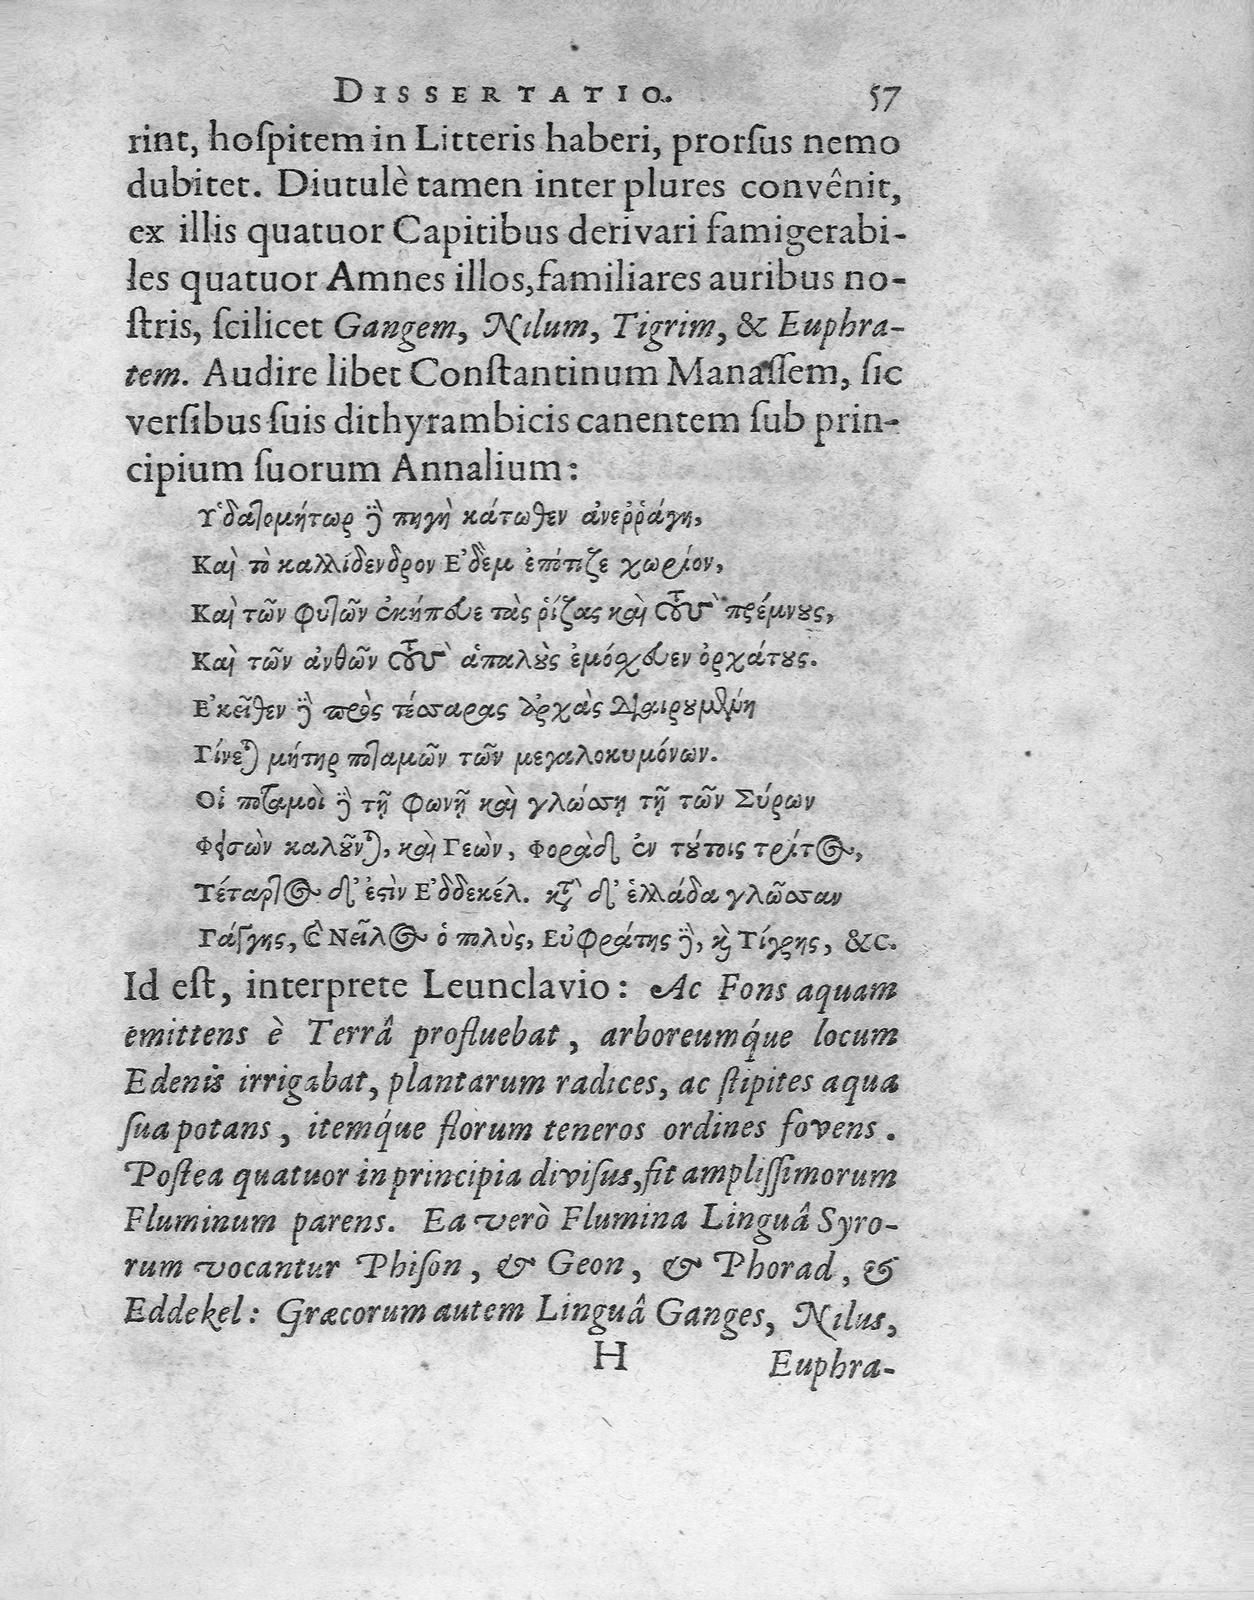 DISSERTATIO. 57
rint, hoſpitem in Litteris haberi, prorſus nemo
dubitet. Diutulè tamen inter plures convênit,
ex illis quatuor Capitibus derivari famigerabi-
les quatuor Amnes illos, familiares auribus no-
ſtris, ſcilicet Gangem, Nilum, Tigrim, & Euphra-
tem. Audire libet Conſtantinum Manaſſem, ſic
verſibus ſuis dithyrambicis canentem ſub prin-
cipium ſuorum Annalium:
Υ̓δατομήτωρ ἢ πηγὴ κάτωθεν ἀνεῤῥάγη,
Καὶ τὸ καλλίδενδρον Ε᾿δὲμ ἐπότιζε χωρίον,
Καὶ τῶν φυτῶν ἐκήπευε τὰς ῥίζας καὶ τοὺς πρέμνους,
Καὶ τῶν ἀνθῶν τοὺς ἁπαλοὺς ἐμόσχευεν ὀρχάτους.
Ε᾿κεῖθεν δὲ πρὸς τέσσαρας ἀρχὰς διαιρουμένη
Γίνεται μήτηρ ποταμῶν τῶν μεγαλοκυμόνων.
Οἱ ποταμοὶ δὲ τῇ φωνῇ καὶ γλώσσῃ τῇ τῶν Σύρων
Φεισὼν καλοῦνται, καὶ Γεὼν, Φορὰδ ἐν τούτοις τρίτος,
Τέταρτος δ᾿ ἐστὶν Ε᾿δδεκέλ. κατὰ δ᾿ ἑλλάδα γλῶσσαν
Γάγγης, καὶ Νεῖλος ὁ πολὺς, Εὐφράτης δὲ, καὶ Τίγρης, &c.
Id eſt, interprete Leunclavio: Ac Fons aquam
emittens è Terrâ profluebat, arboreumq́ue locum
Edenis irrigabat, plantarum radices, ac ſtipites aqua
ſua potans, itemq́ue florum teneros ordines fovens.
Poſtea quatuor in principia diviſus, fit ampliſſimorum
Fluminum parens. Ea verò Flumina Linguâ Syro-
rum vocantur Phiſon, & Geon, & Phorad, &
Eddekel: Græcorum autem Linguâ Ganges, Nilus,
H Euphra-